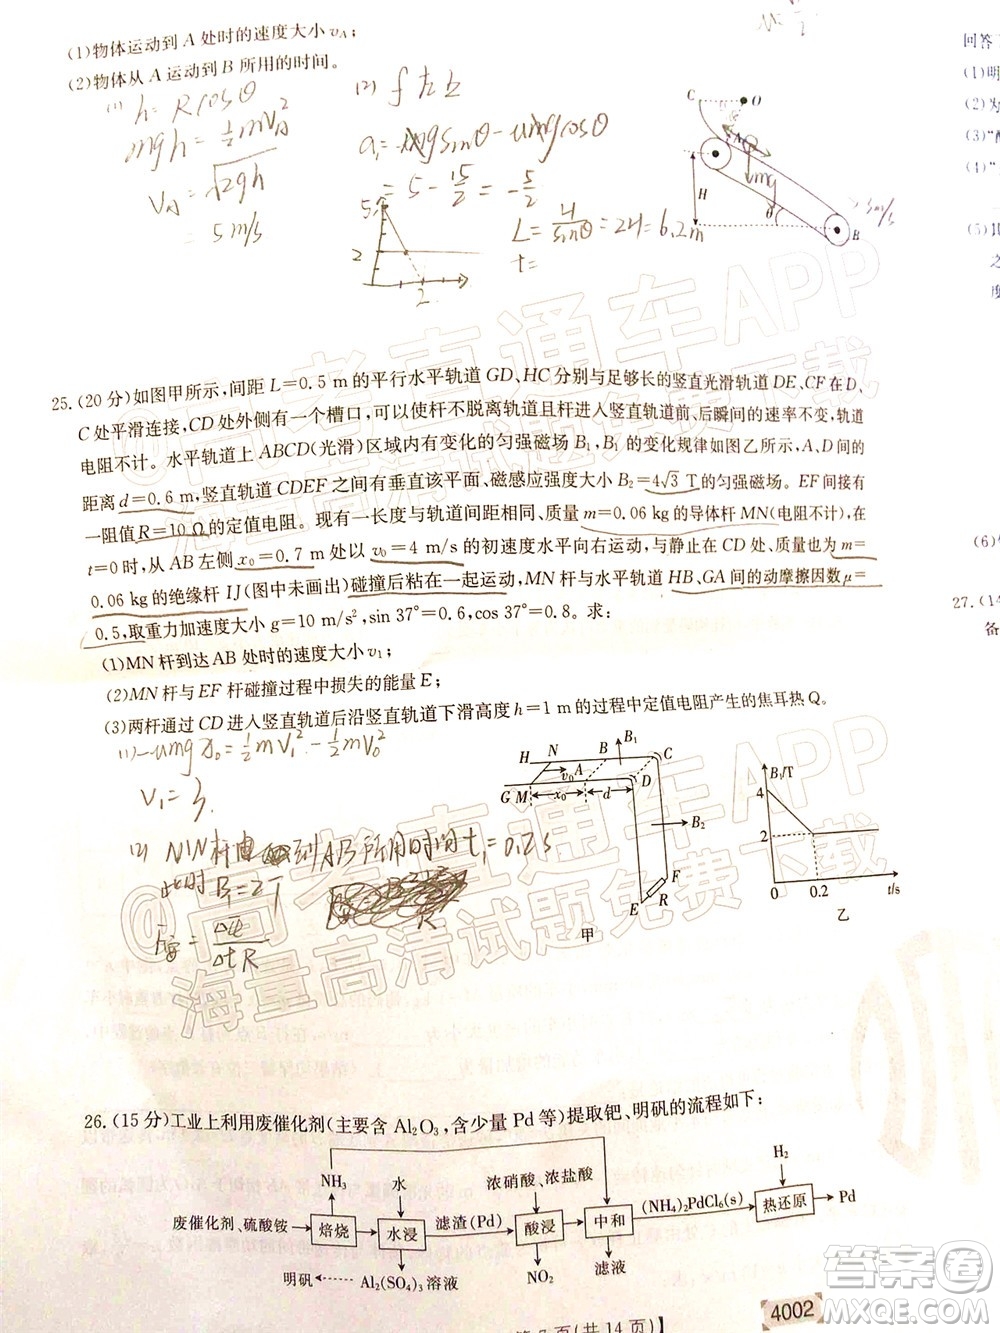 (1)物体运动到A处时的速度大小v_A;
(2)物体从A运动到B所用的时间。
(1) h=Rcosθ
mgh=½mV_A²
V_A=√2gh
=5m/s
(2)
a₁=mgsinθ-umgcosθ
=5-15/2=-5/2
L=H/sinθ=2H=6.2m
t=
5
2
2
C
O
A
mg
H
θ
B
3m/s
25.(20分)如图甲所示,间距L=0.5 m的平行水平轨道GD、HC分别与足够长的竖直光滑轨道DE、CF在D、
C处平滑连接,CD处外侧有一个槽口,可以使杆不脱离轨道且杆进入竖直轨道前、后瞬间的速率不变,轨道
电阻不计。水平轨道上ABCD(光滑)区域内有变化的匀强磁场B₁,B₁的变化规律如图乙所示,A、D间的
距离d=0.6 m,竖直轨道CDEF之间有垂直该平面、磁感应强度大小B₂=4√3 T的匀强磁场。EF间接有
一阻值R=10 Ω的定值电阻。现有一长度与轨道间距相同、质量m=0.06 kg的导体杆MN(电阻不计),在
t=0时,从AB左侧x₀=0.7 m处以v₀=4 m/s的初速度水平向右运动,与静止在CD处、质量也为m=
0.06 kg的绝缘杆IJ(图中未画出)碰撞后粘在一起运动,MN杆与水平轨道HB、GA间的动摩擦因数μ=
0.5,取重力加速度大小g=10 m/s²,sin 37°=0.6,cos 37°=0.8。求:
(1)MN杆到达AB处时的速度大小v₁;
(2)MN杆与EF杆碰撞过程中损失的能量E;
(3)两杆通过CD进入竖直轨道后沿竖直轨道下滑高度h=1 m的过程中定值电阻产生的焦耳热Q。
(1)-umgx₀=½mV₁²-½mV₀²
V₁=3
(2) MN杆 到AB所用时间t₁=0.2s
此时B₁=2T
H
N
B
B₁
C
v₀
A
D
G
M
x₀
d
B₂
F
E
R
甲
B₁/T
4
2
0
0.2
t/s
乙
26.(15分)工业上利用废催化剂(主要含Al₂O₃,含少量Pd等)提取钯、明矾的流程如下:
NH₃
水
浓硝酸、浓盐酸
H₂
废催化剂、硫酸铵
焙烧
水浸
滤渣(Pd)
酸浸
中和
(NH₄)₂PdCl₆(s)
热还原
Pd
明矾
Al₂(SO₄)₃溶液
NO₂
滤液
页(共14页)】
4002
回答
(1)明
(2)为
(3)"酸
(4)"
(5)10
之
度
(6)
27.(14
备
@高考直通车APP
海量高清试题免费下载
@高考直通车APP
海量高清试题免费下载
答案圈
MXQE.COM